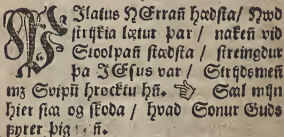 Pilatus HErrañ hædsta/ Nwd
strijkia lætur þar/ nakeñ vid
Stoolpañ stædsta/ streingdur
þa JEsus var/ Strijdsmeñ
mz Svipū hrocktu hñ. ☞ Sæl mijn
hier siaa og skoda/ hvad Sonur Guds
fyrer þig